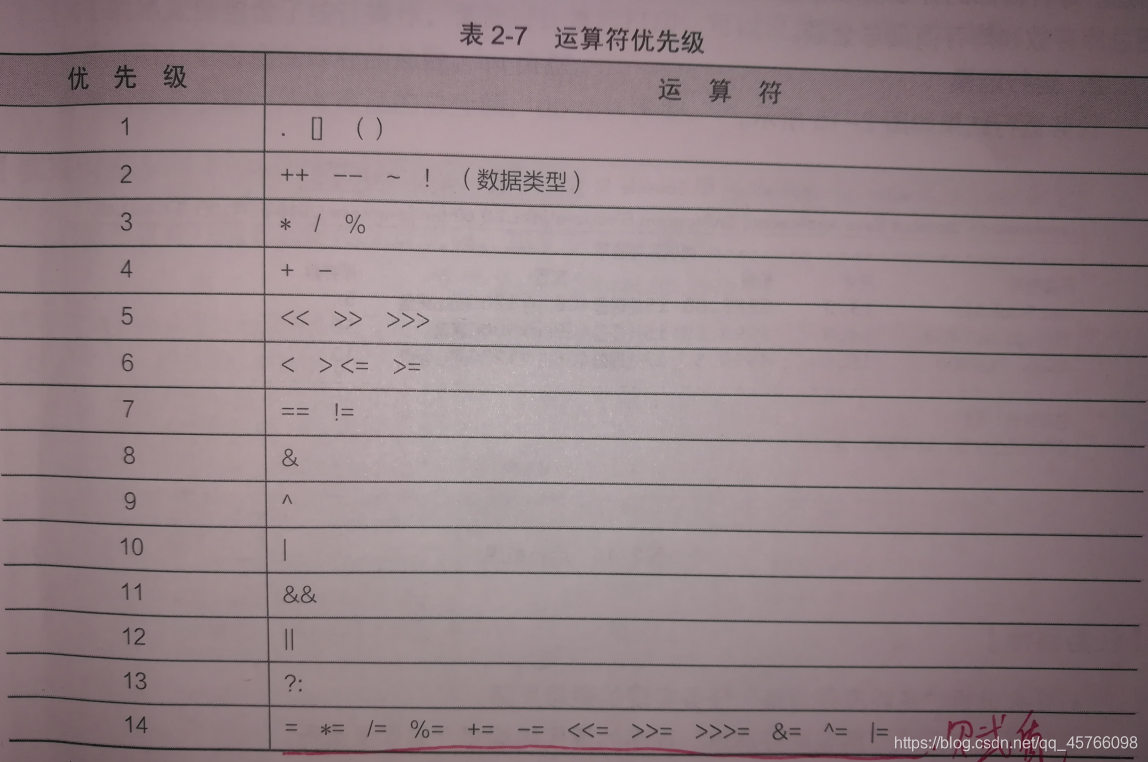 表 2-7 运算符优先级
优 先 级 运 算 符
1 . [] ( )
2 ++ -- ~ ! （数据类型）
3 * / %
4 + -
5 << >> >>>
6 < > <= >=
7 == !=
8 &
9 ^
10 |
11 &&
12 ||
13 ?:
14 = *= /= %= += -= <<= >>= >>>= &= ^= |=
https://blog.csdn.net/qq_45766098